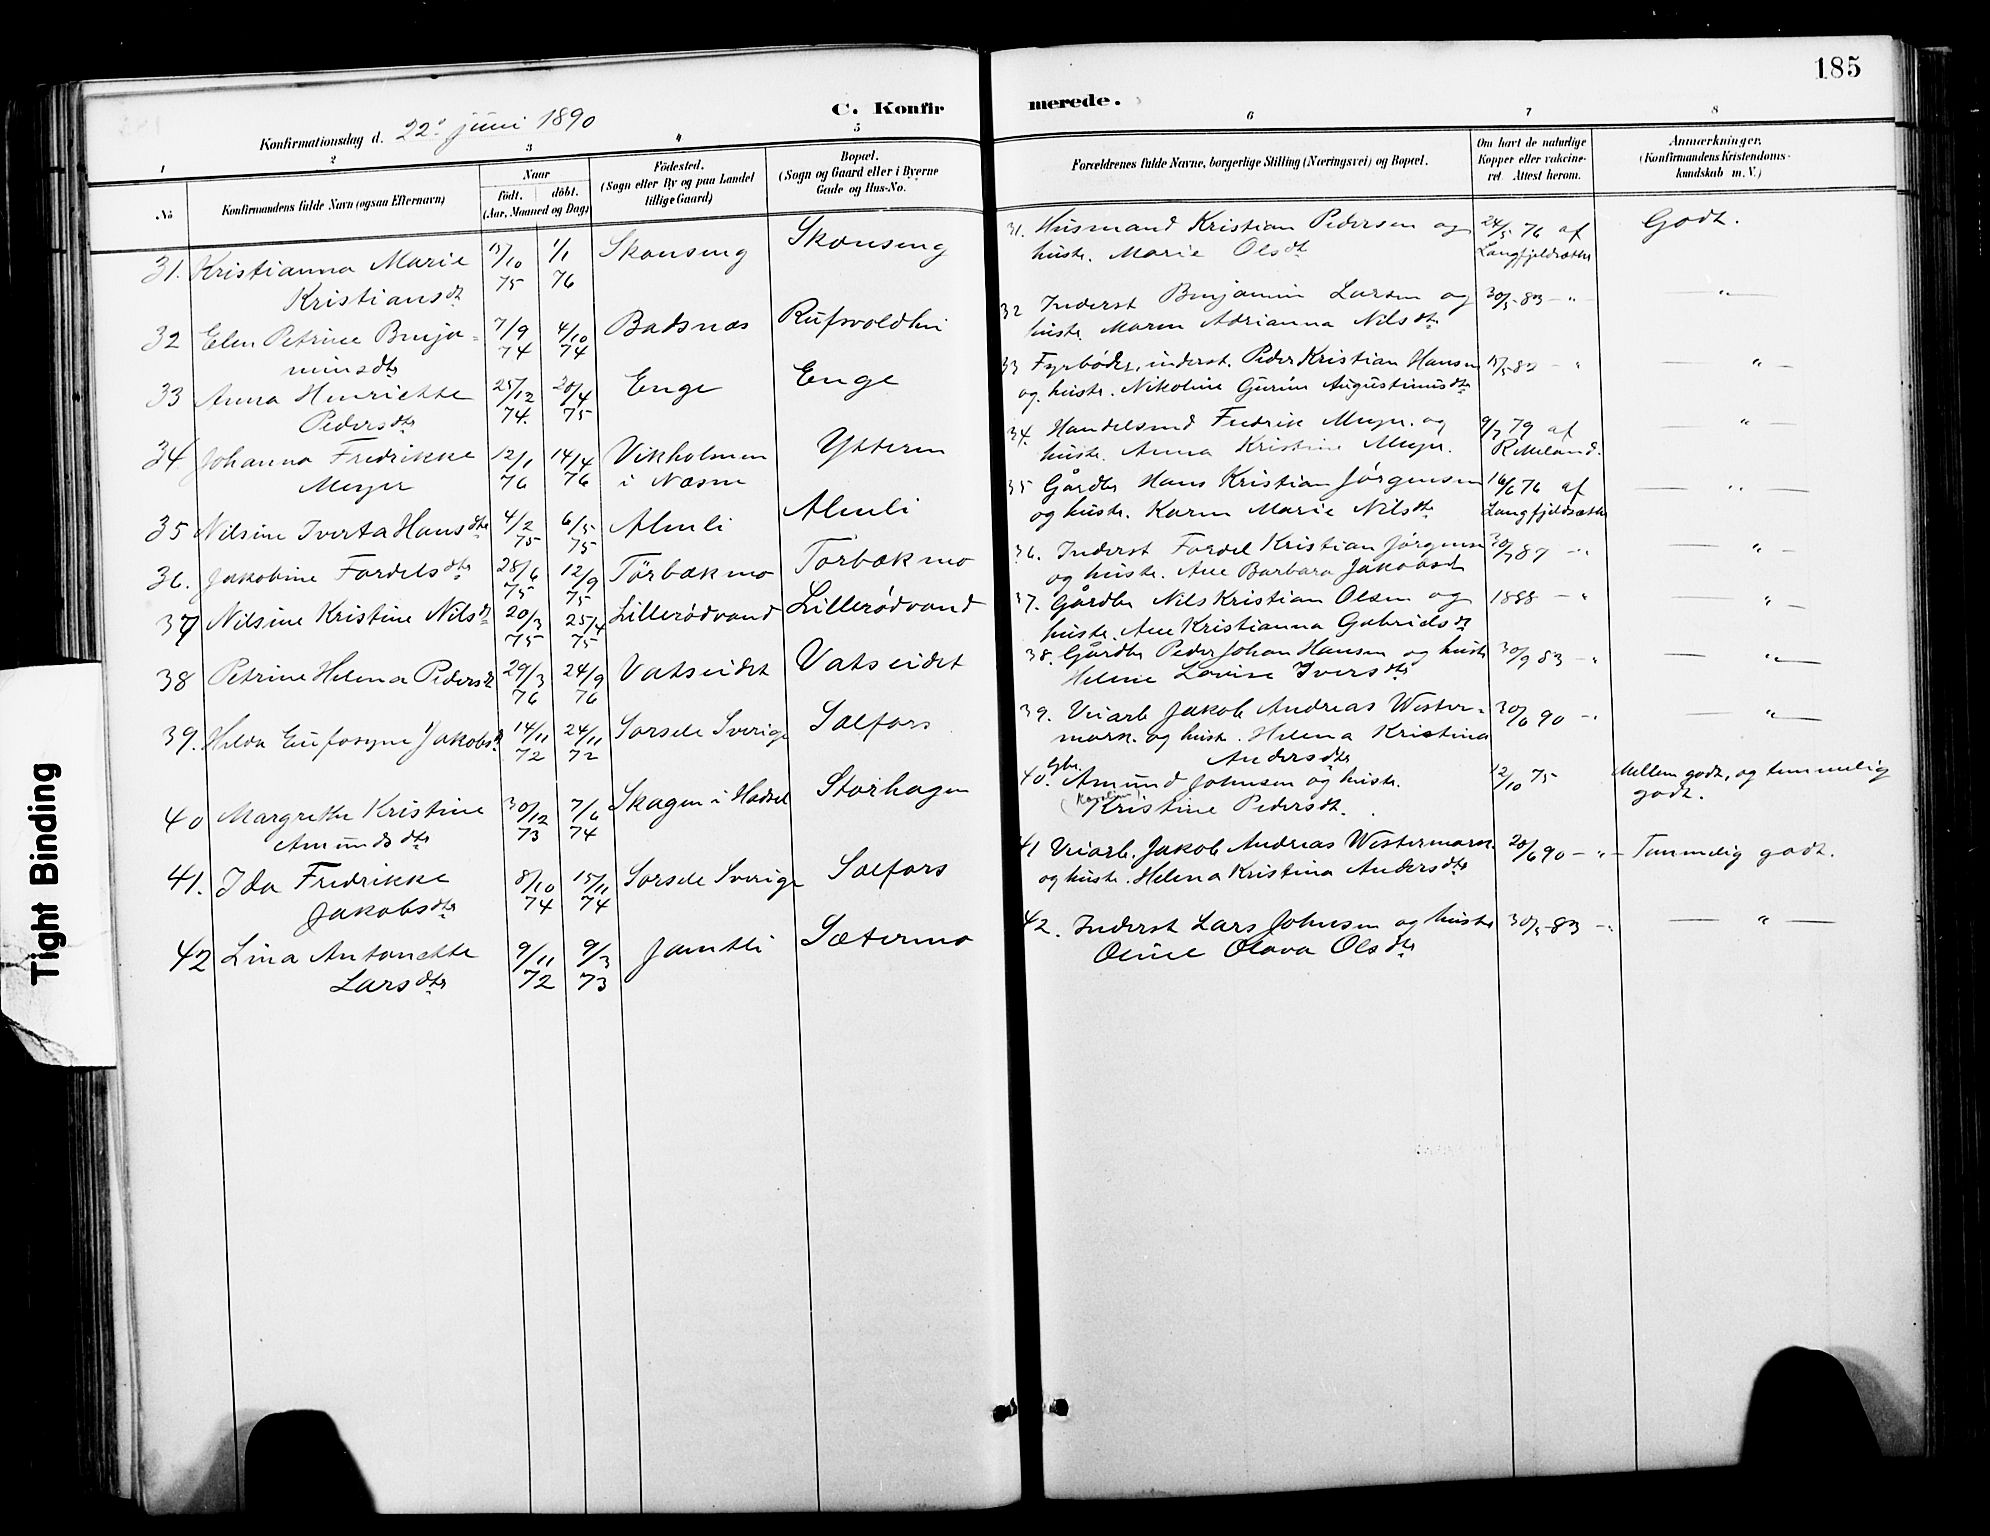 185
C. Konfirmerede.
Konfirmationsdag d. 22de juni 1890
1 2 3 4 5 6 7 8
No
Konfirmandens fulde Navn (ogsaa Efternavn)
Naar
født. døbt.
(Aar, Maaned og Dag)
Fødested.
(Sogn eller By og paa Landet
tillige Gaard)
Bopæl.
(Sogn og Gaard eller i Byerne
Gade og Hus-No.
Forældrenes fulde Navne, borgerlige Stilling (Næringsvei) og Bopæl.
Om havt de naturlige
Kopper eller vakcineret.
Attest herom.
Anmærkninger.
(Konfirmandens Kristendomskundskab
m. V.)
31. Kristianna Marie 15/10 1/1 Skonseng Skonseng
Kristiansdt 75 76
31. Husmand Kristian Pedersen og 24/5 76 af Godt.
hustr. Marie Olsdt Langfjeldsæther
32 Elen Petrine Benja- 7/9 4/10 Badsnæs
minsdtr 74 74
32 Inderst Benjamin Larsen og 30/5 83 - "
hustr. Maren Adrianna Nilsdtr
33 Anna Henriette 25/12 20/4 Enge Enge
Pedersdtr 74. 75
33 Fyrbøder, inderst. Peder Kristian Hansen "
og hustr. Nikoline Gurine Augustinusdtr
34 Johanna Fredrikke 12/1 14/4 Vikholmen Ytteren
Meyer 76 76 i Næsne
34. Handelsmd Fredrik Meyer. og 9/7 79 af "
hustr. Anna Kristine Meyer.
35 Nilsine Iverta Hansdtr 4/2 75 6/5 75 Almli Almli
35 Gårdbr Hans Kristian Jørgensen 16/6 76 af "
og hustr. Karen Marie Nilsdtr Langfjeldsæther
36. Jakobine Fordelsdtr 28/6 75 12/9 75 Tørbækmo Tørbækmo
36. Inderst Fordel Kristian Jørgensen 30/7 87 - "
og hustr. Ane Barbara Jakobsdt
37 Nilsine Kristine Nilsdt 20/3 75 25/4 75 Lillerødvand Lillerødvand
37. Gårdbr Nils Kristian Olsen og 1888 - "
hustr. Ane Kristianna Gabrielsdt
38 Petrine Helena Pedersdt 29/3 76 24/9 76 Vatseidet Vatseidet
38. Gårdbr Peder Johan Hansen og hustr 30/9 83 - "
Helene Lovise Iversdtr
39. Hilda Eufrosyne Jakobsdt 14/11 72 24/11 72 Sorsele Sverige Selfors
39. Veiarb. Jakob Andreas Wester- 30/6 90 - "
mark. og hustr. Helena Kristina
Andersdtr
40 Margrethe Kristine 30/12 7/6 Skagen i Hadsel Storhagen
Amundsdtr 73 74
40. Gbr. Amund Johnsen og hustr. 12/10 75 Mellem godt, og temmelig
Kristine Pedersdt. godt.
41. Ida Fredrikke 8/10 15/11 Sorsele Sverige Selfors
Jakobsdtr 74 74
41 Veiarb. Jakob Andreas Westermark 20/6 90 - " Temmelig godt.
og hustr. Helena Kristina Andersdtr
42 Lina Antonette 9/11 9/3 Jamtli Sætermo
Larsdtr 72 73
42. Inderst Lars Johnsen og hustr 30/5 83 - " "
Oline Olava Olsdtr
Tight Binding